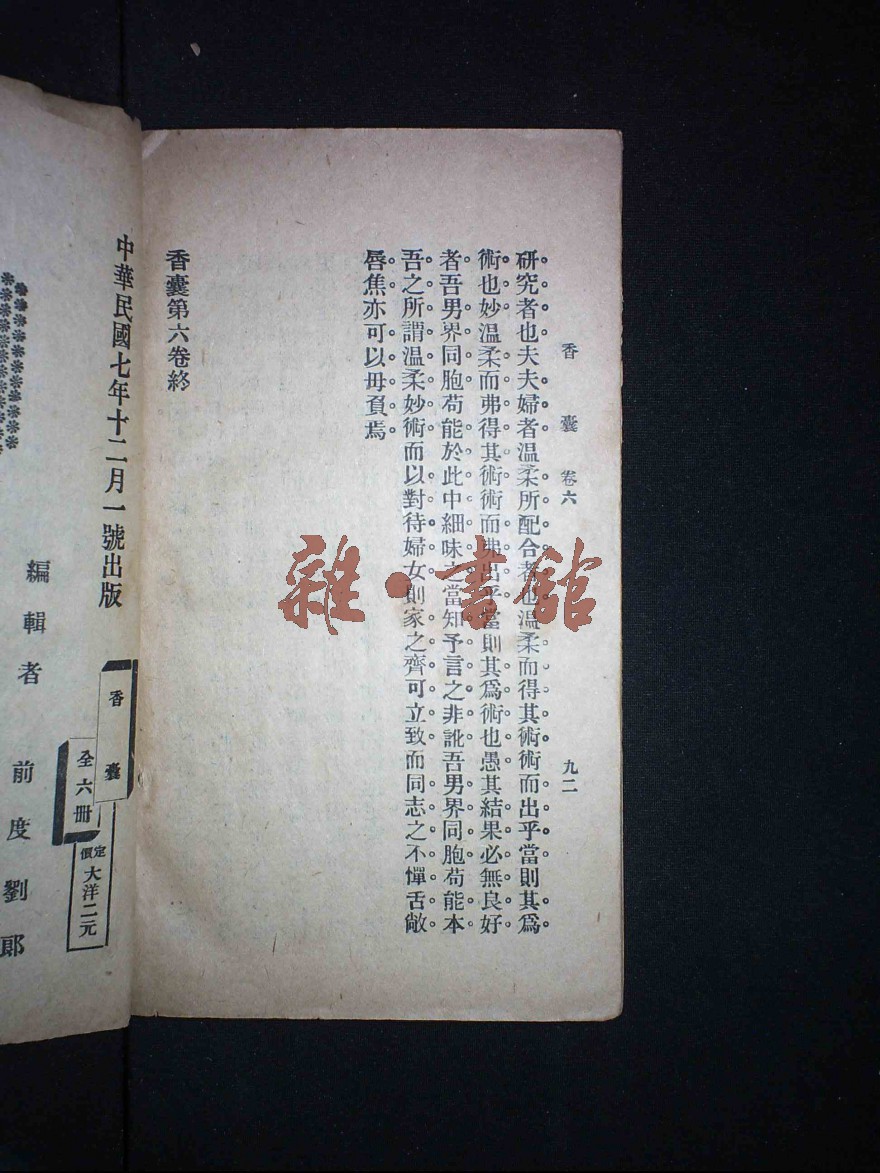 香囊 卷六 九二
研究者也夫夫婦者溫柔所配合者也溫柔而得其術術而出乎當則其爲
術也妙溫柔而弗得其術術而弗出乎當則其爲術也愚其結果必無良好
者吾男界同胞苟能於此中細味之當知予言之非訛吾男界同胞苟能本
吾之所謂溫柔妙術而以對待婦女則家之齊可立致而同志之不憚舌敝
唇焦亦可以毋負焉
香囊第六卷終
中華民國七年十二月一號出版
香囊
全六册
定價大洋二元
編輯者 前度劉郎
雜·書館